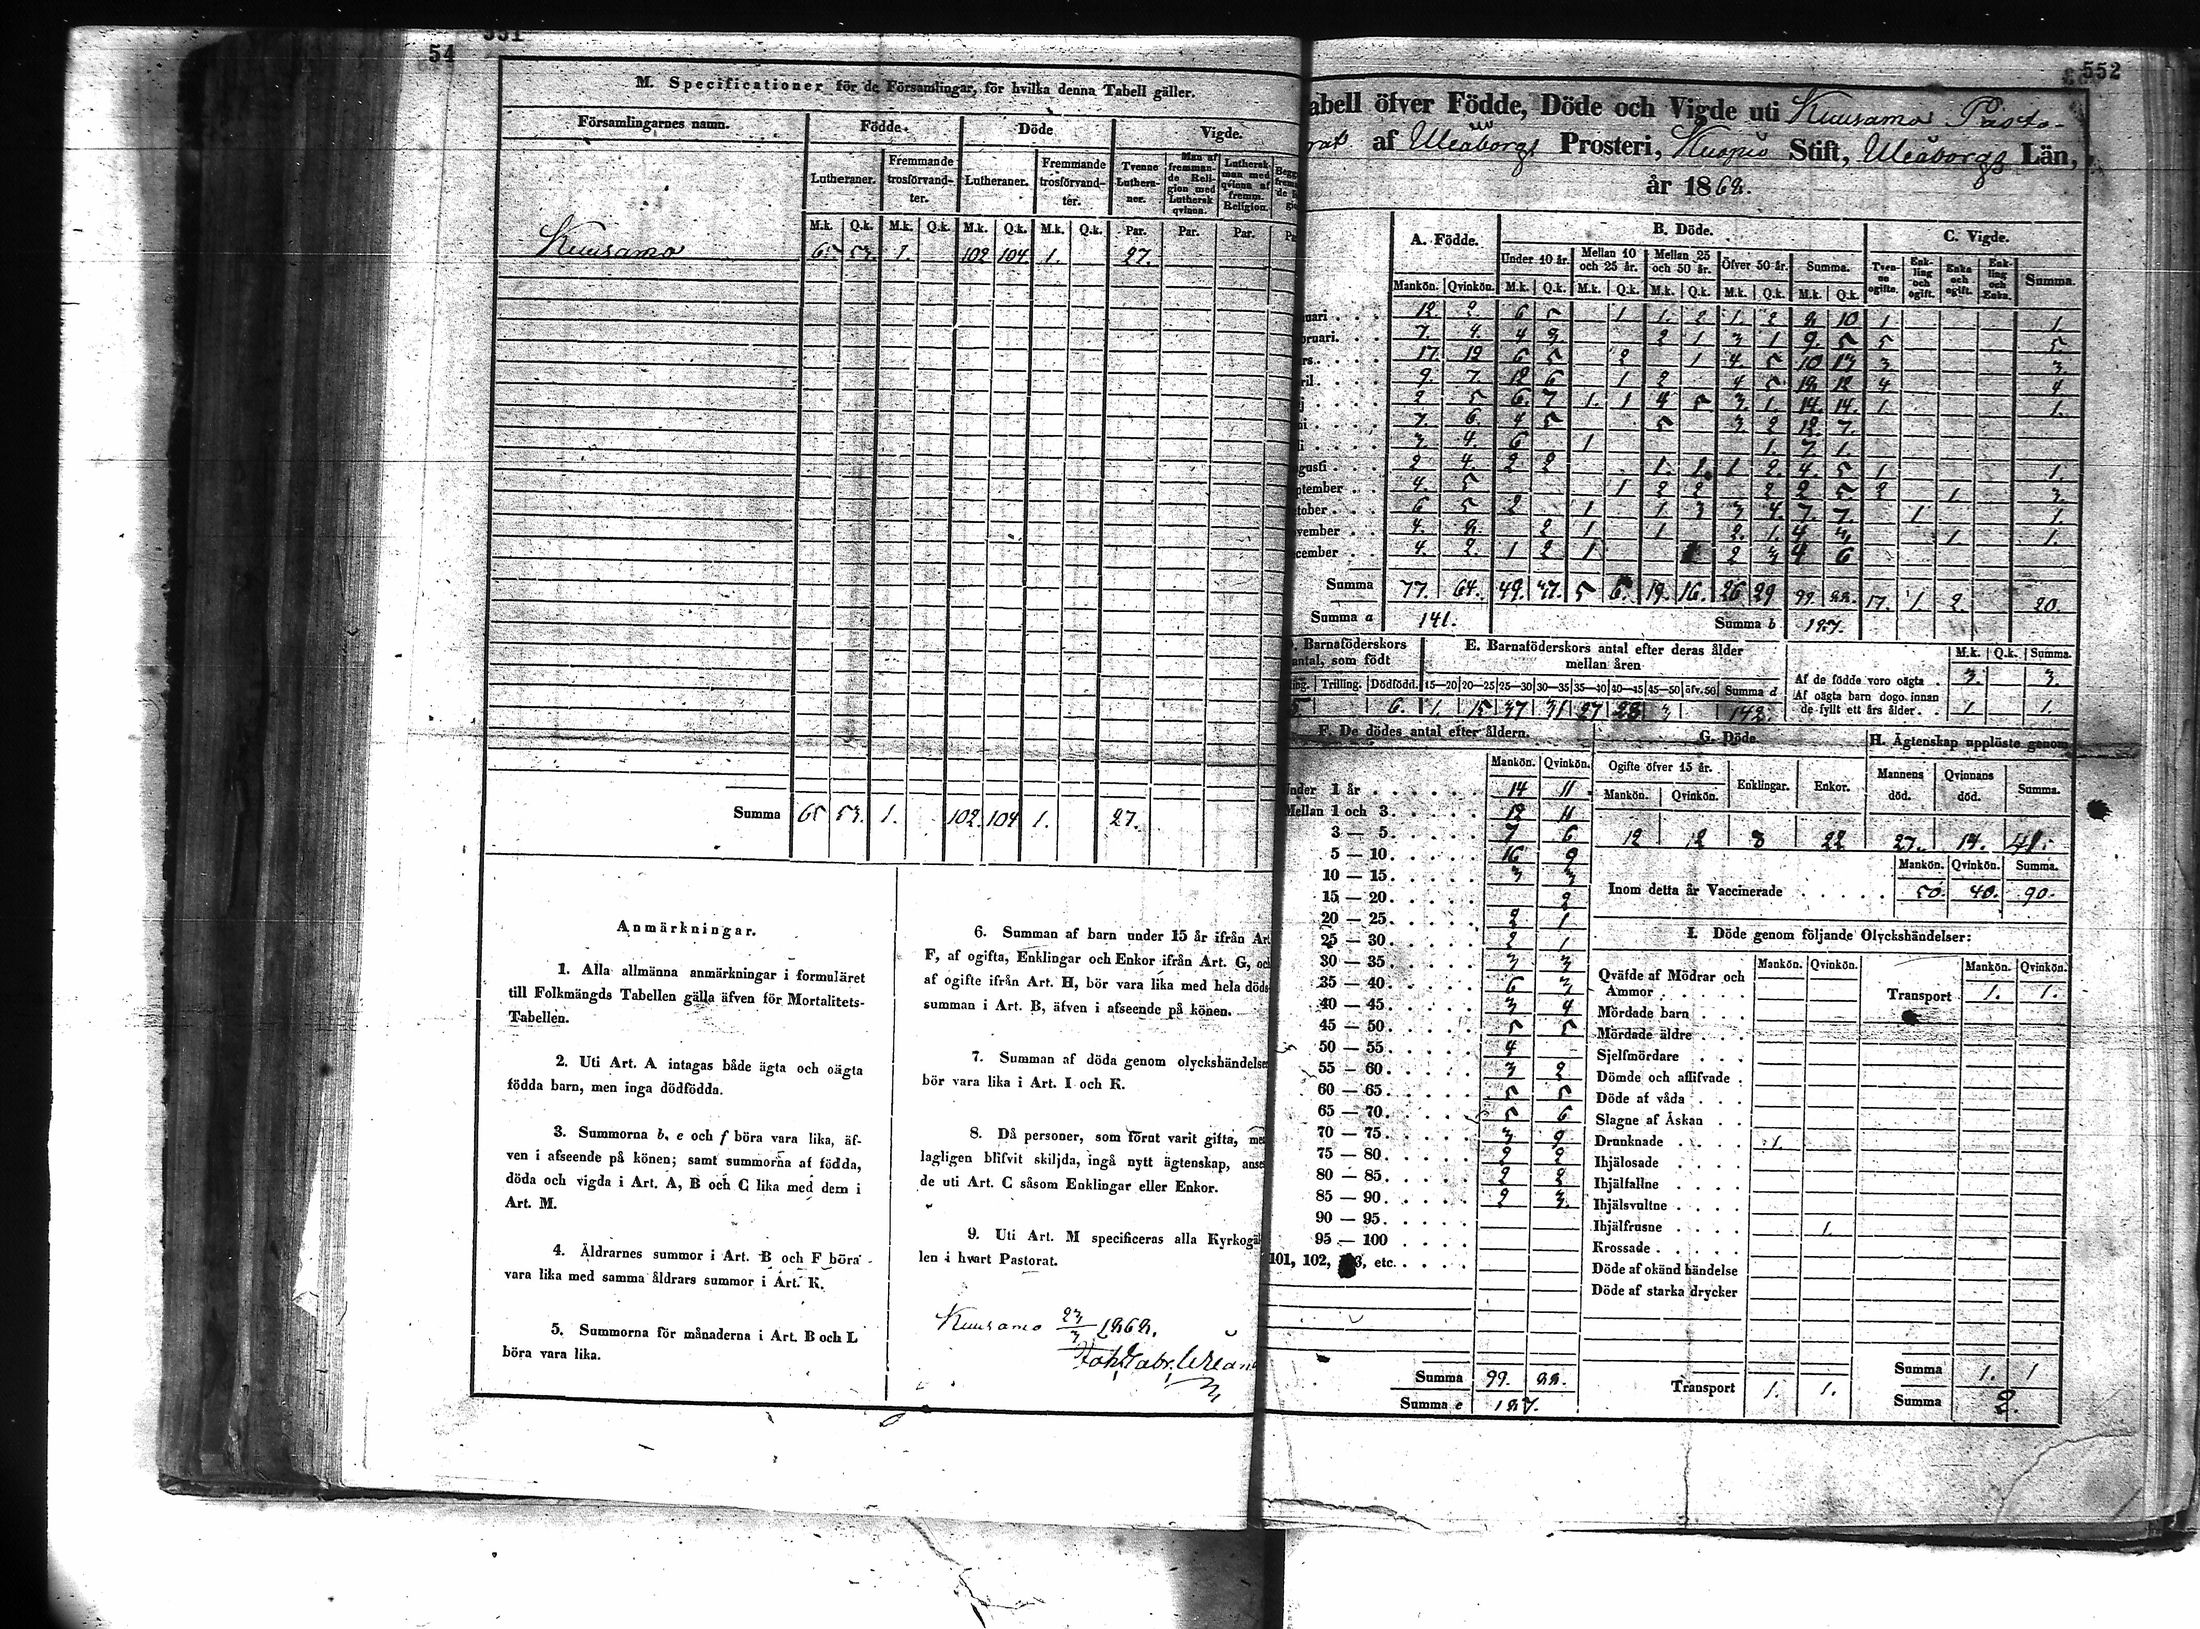 54
551
M. Specificationer för de Församlingar, för hvilka denna Tabell gäller.
Församlingarnes namn. Födde. Döde Vigde.
Lutheraner. Fremmande trosförvandter. Lutheraner. Fremmande trosförvandter. Tvenne Lutheraner. Man af fremmande Religion med Luthersk qvinna. Luthersk man med qvinna af fremm. Religion.
M.k. Q.k. M.k. Q.k. M.k. Q.k. M.k. Q.k. Par. Par. Par.
Kuusamo 65 53. 1. 102 104. 1. 27.
Summa 65 53. 1. 102. 104 1. 27.
Anmärkningar.
1. Alla allmänna anmärkningar i formuläret
till Folkmängds Tabellen gälla äfven för Mortalitets-
Tabellen.
2. Uti Art. A intagas både ägta och oägta
födda barn, men inga dödfödda.
3. Summorna b, e och f böra vara lika, äf-
ven i afseende på könen; samt summorna af födda,
döda och vigda i Art. A, B och C lika med dem i
Art. M.
4. Åldrarnes summor i Art. B och F böra
vara lika med samma åldrars summor i Art. K.
5. Summorna för månaderna i Art. B och L
böra vara lika.
6. Summan af barn under 15 år ifrån Art
F, af ogifta, Enklingar och Enkor ifrån Art. G, och
af ogifte ifrån Art. H, bör vara lika med hela döds
summan i Art. B, äfven i afseende på könen.
7. Summan af döda genom olyckshändelse
bör vara lika i Art. I och K.
8. Då personer, som förut varit gifta, me
lagligen blifvit skiljda, ingå nytt ägtenskap, anse
de uti Art. C såsom Enklingar eller Enkor.
9. Uti Art. M specificeras alla Kyrkogäl
len i hvart Pastorat.
Kuusamo 23/3 1868.
552
abell öfver Födde, Döde och Vigde uti Kuusamo Pasto-
rat af Uleåborgs Prosteri, Kuopio Stift, Uleåborgs Län,
år 1862.
A. Födde. B. Döde. C. Vigde.
Under 10 år. Mellan 10 och 25 år. Mellan 25 och 50 år. Öfver 50 år. Summa. Tvenne ogifte. Enkling och ogift. Enka och ogift. Enkling och Enka. Summa.
Mankön. Qvinkön. M.k. Q.k. M.k. Q.k. M.k. Q.k. M.k. Q.k. M.k. Q.k.
uari 12 2. 6 5 1 1. 2 1. 2 8 10 1. 1.
bruari. 7. 4. 4 3 2 1 3 1 9. 5 5 5.
rs. 17. 12 6 5 2 1 4. 5 10 13 3 3
ril 9. 7. 12 6 1 2 4 5 18 12 4 4
j 2 5 6. 7 1. 1 4 5 3. 1. 14. 14. 1. 1.
ni 7 6. 4 5 5 3 2 12 7.
li 3. 4. 6 1 1. 7 1.
gusti 2 4. 2 2 1. 1. 1 2. 4. 5 1 1.
ptember 4 5 1 2 2 2 2 5 2 1 3.
tober 6 5 2 1 1. 3 3 4. 7. 7. 1 1.
vember 4. 8. 2 1 1 2. 1. 4 3. 1 1.
cember 4. 2. 1 2 1 2 3 4 6
Summa 77. 64. 49. 37. 5 6. 19. 16. 26 29 99. 88. 17. 1. 2. 20.
Summa a 141. Summa b 187.
Barnaföderskors antal, som födt
E. Barnaföderskors antal efter deras ålder mellan åren
M.k. Q.k. Summa.
Trilling. Dödfödd. 15—20 20—25 25—30 30—35 35—40 40—45 45—50 öfv. 50 Summa d
Af de födde voro oägta 3. 3.
Af oägta barn dogo innan de fyllt ett års ålder 1. 1.
5. 6. 1. 15 37 31 27 28 3 142.
F. De dödes antal efter åldern.
Mankön. Qvinkön.
Under 1 år 14 11
Mellan 1 och 3. 12 11
3 — 5. 7 6
5 — 10. 16 9
10 — 15. 3 3
15 — 20. 2
20 — 25. 2 1
25 — 30. 2 1
30 — 35. 3 3
35 — 40. 6 3
40 — 45. 3 4
45 — 50. 5 5
50 — 55. 4
55 — 60. 3 2
60 — 65. 5 5
65 — 70. 5 6
70 — 75. 3 9
75 — 80. 2 2
80 — 85. 2 2
85 — 90. 2 3.
90 — 95.
95 — 100
101, 102, 103, etc.
Summa 99. 88.
Summa e 187.
G. Döde
Ogifte öfver 15 år. Enklingar. Enkor.
Mankön. Qvinkön.
12 12 8 22
H. Ägtenskap upplöste genom
Mannens död. Qvinnans död. Summa.
27. 14. 41.
Mankön. Qvinkön. Summa.
Inom detta år Vaccinerade 50. 40. 90.
I. Döde genom följande Olyckshändelser:
Mankön. Qvinkön. Mankön. Qvinkön.
Qväfde af Mödrar och Ammor
Transport 1. 1.
Mördade barn
Mördade äldre
Sjelfmördare
Dömde och aflifvade
Döde af våda
Slagne af Åskan
Drunknade 1.
Ihjälosade
Ihjälfallne
Ihjälsvultne
Ihjälfrusne 1.
Krossade
Döde af okänd händelse
Döde af starka drycker
Transport 1. 1.
Summa 1. 1
Summa 2.